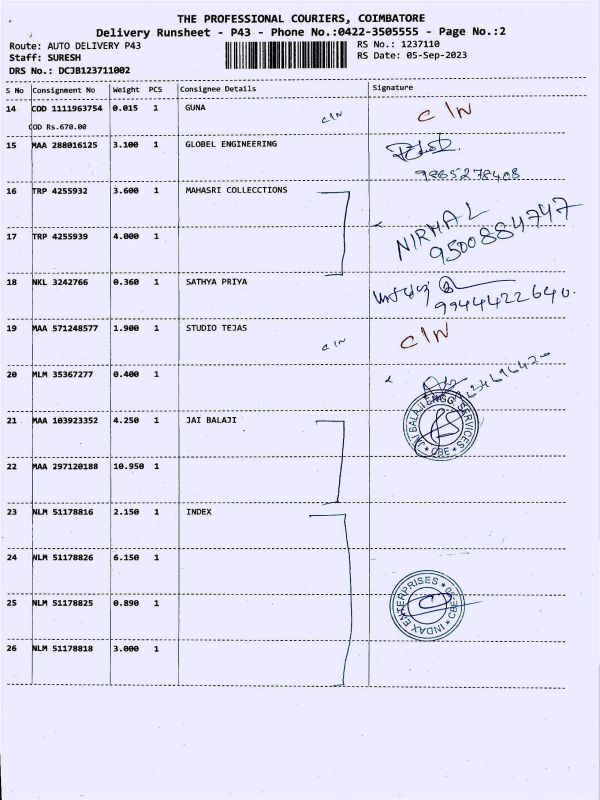 THE PROFESSIONAL COURIERS, COIMBATORE
Delivery Runsheet - P43 - Phone No.:0422-3505555 - Page No.:2
Route: AUTO DELIVERY P43 RS No.: 1237110
Staff: SURESH RS Date: 05-Sep-2023
DRS No.: DCJB123711002
S No Consignment No Weight PCS Consignee Details Signature
14 COD 1111963754 0.015 1 GUNA C/N C/N
COD Rs.670.00
15 MAA 288016125 3.100 1 GLOBEL ENGINEERING
9865278408
16 TRP 4255932 3.600 1 MAHASRI COLLECCTIONS
NIRMAL
9500884747
17 TRP 4255939 4.000 1
18 NKL 3242766 0.360 1 SATHYA PRIYA
9944422640.
19 MAA 571248577 1.900 1 STUDIO TEJAS C/N C/N
20 MLM 35367277 0.400 1
21 MAA 103923352 4.250 1 JAI BALAJI
JAI BALAJI ENGG SERVICES CBE
22 MAA 297120188 10.950 1
23 NLM 51178816 2.150 1 INDEX
24 NLM 51178826 6.150 1
25 NLM 51178825 0.890 1
INDAX ENTERPRISES
26 NLM 51178818 3.000 1